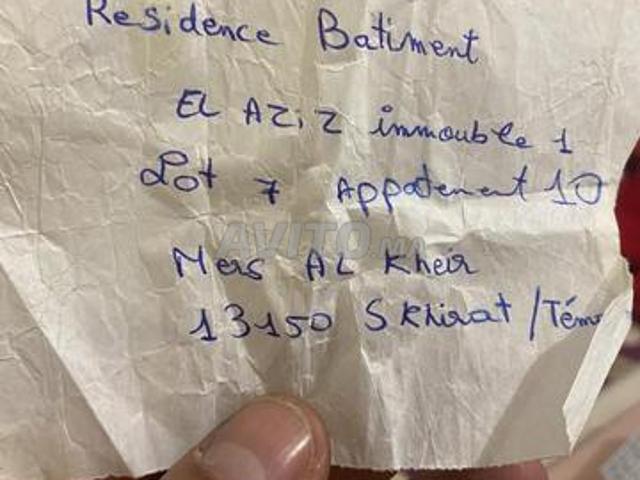 Residence Batiment
EL AZiZ immouble 1
Lot 7 Appatement 10
AVITO.ma
Mers AL Kheir
13150 SKhirat /Tém